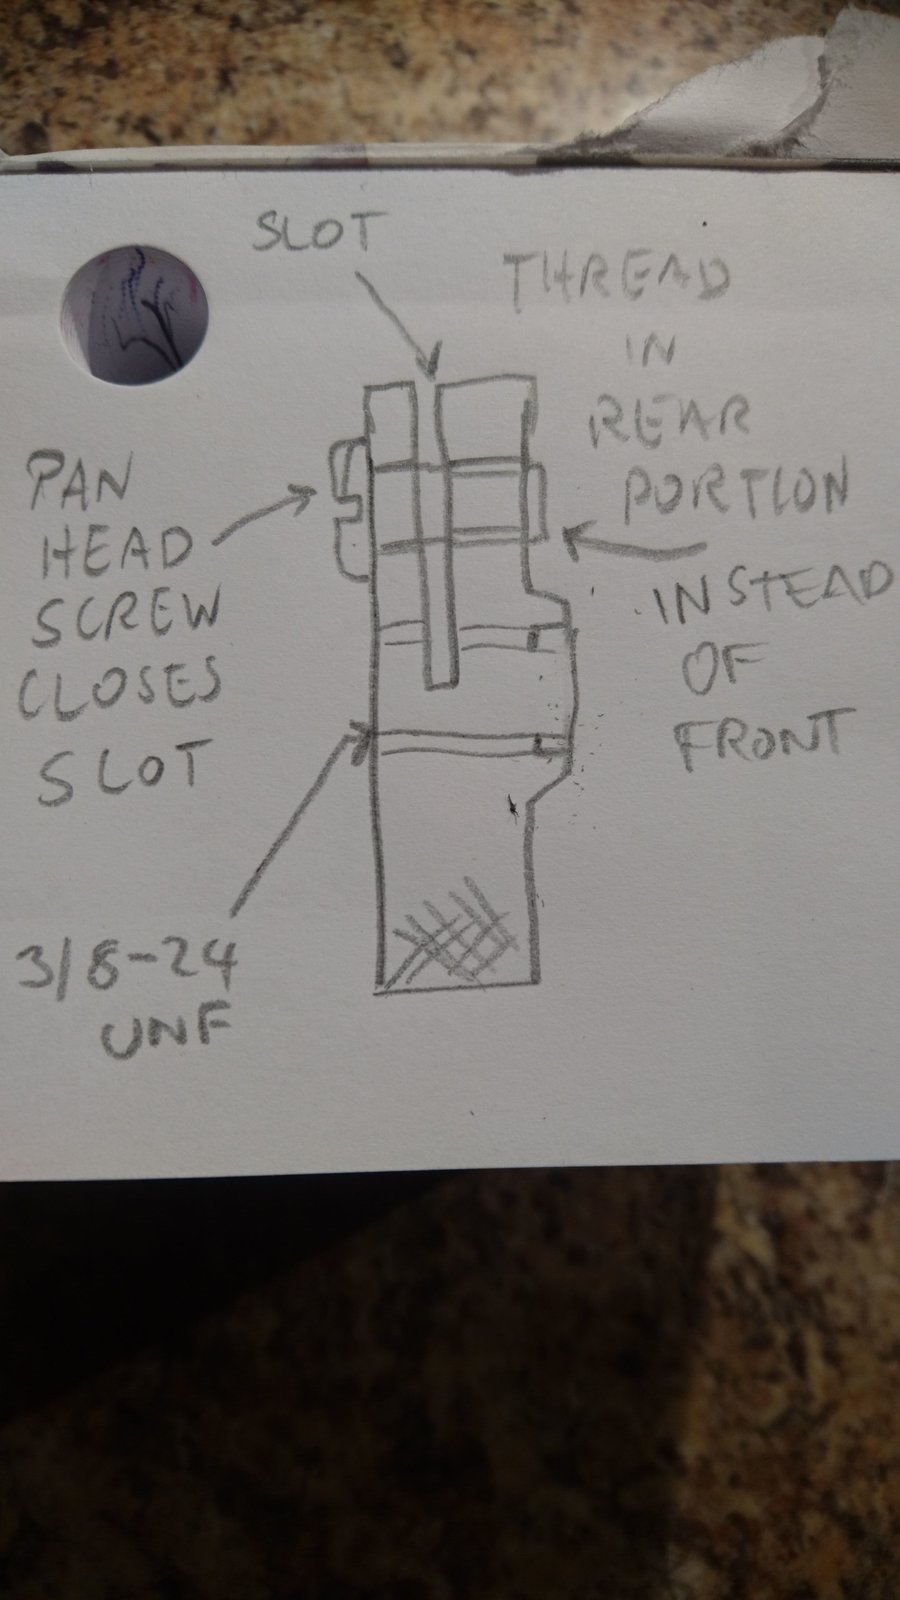 SLOT
THREAD
IN
REAR
PORTION
INSTEAD
OF
FRONT
PAN
HEAD
SCREW
CLOSES
SLOT
3/8-24
UNF